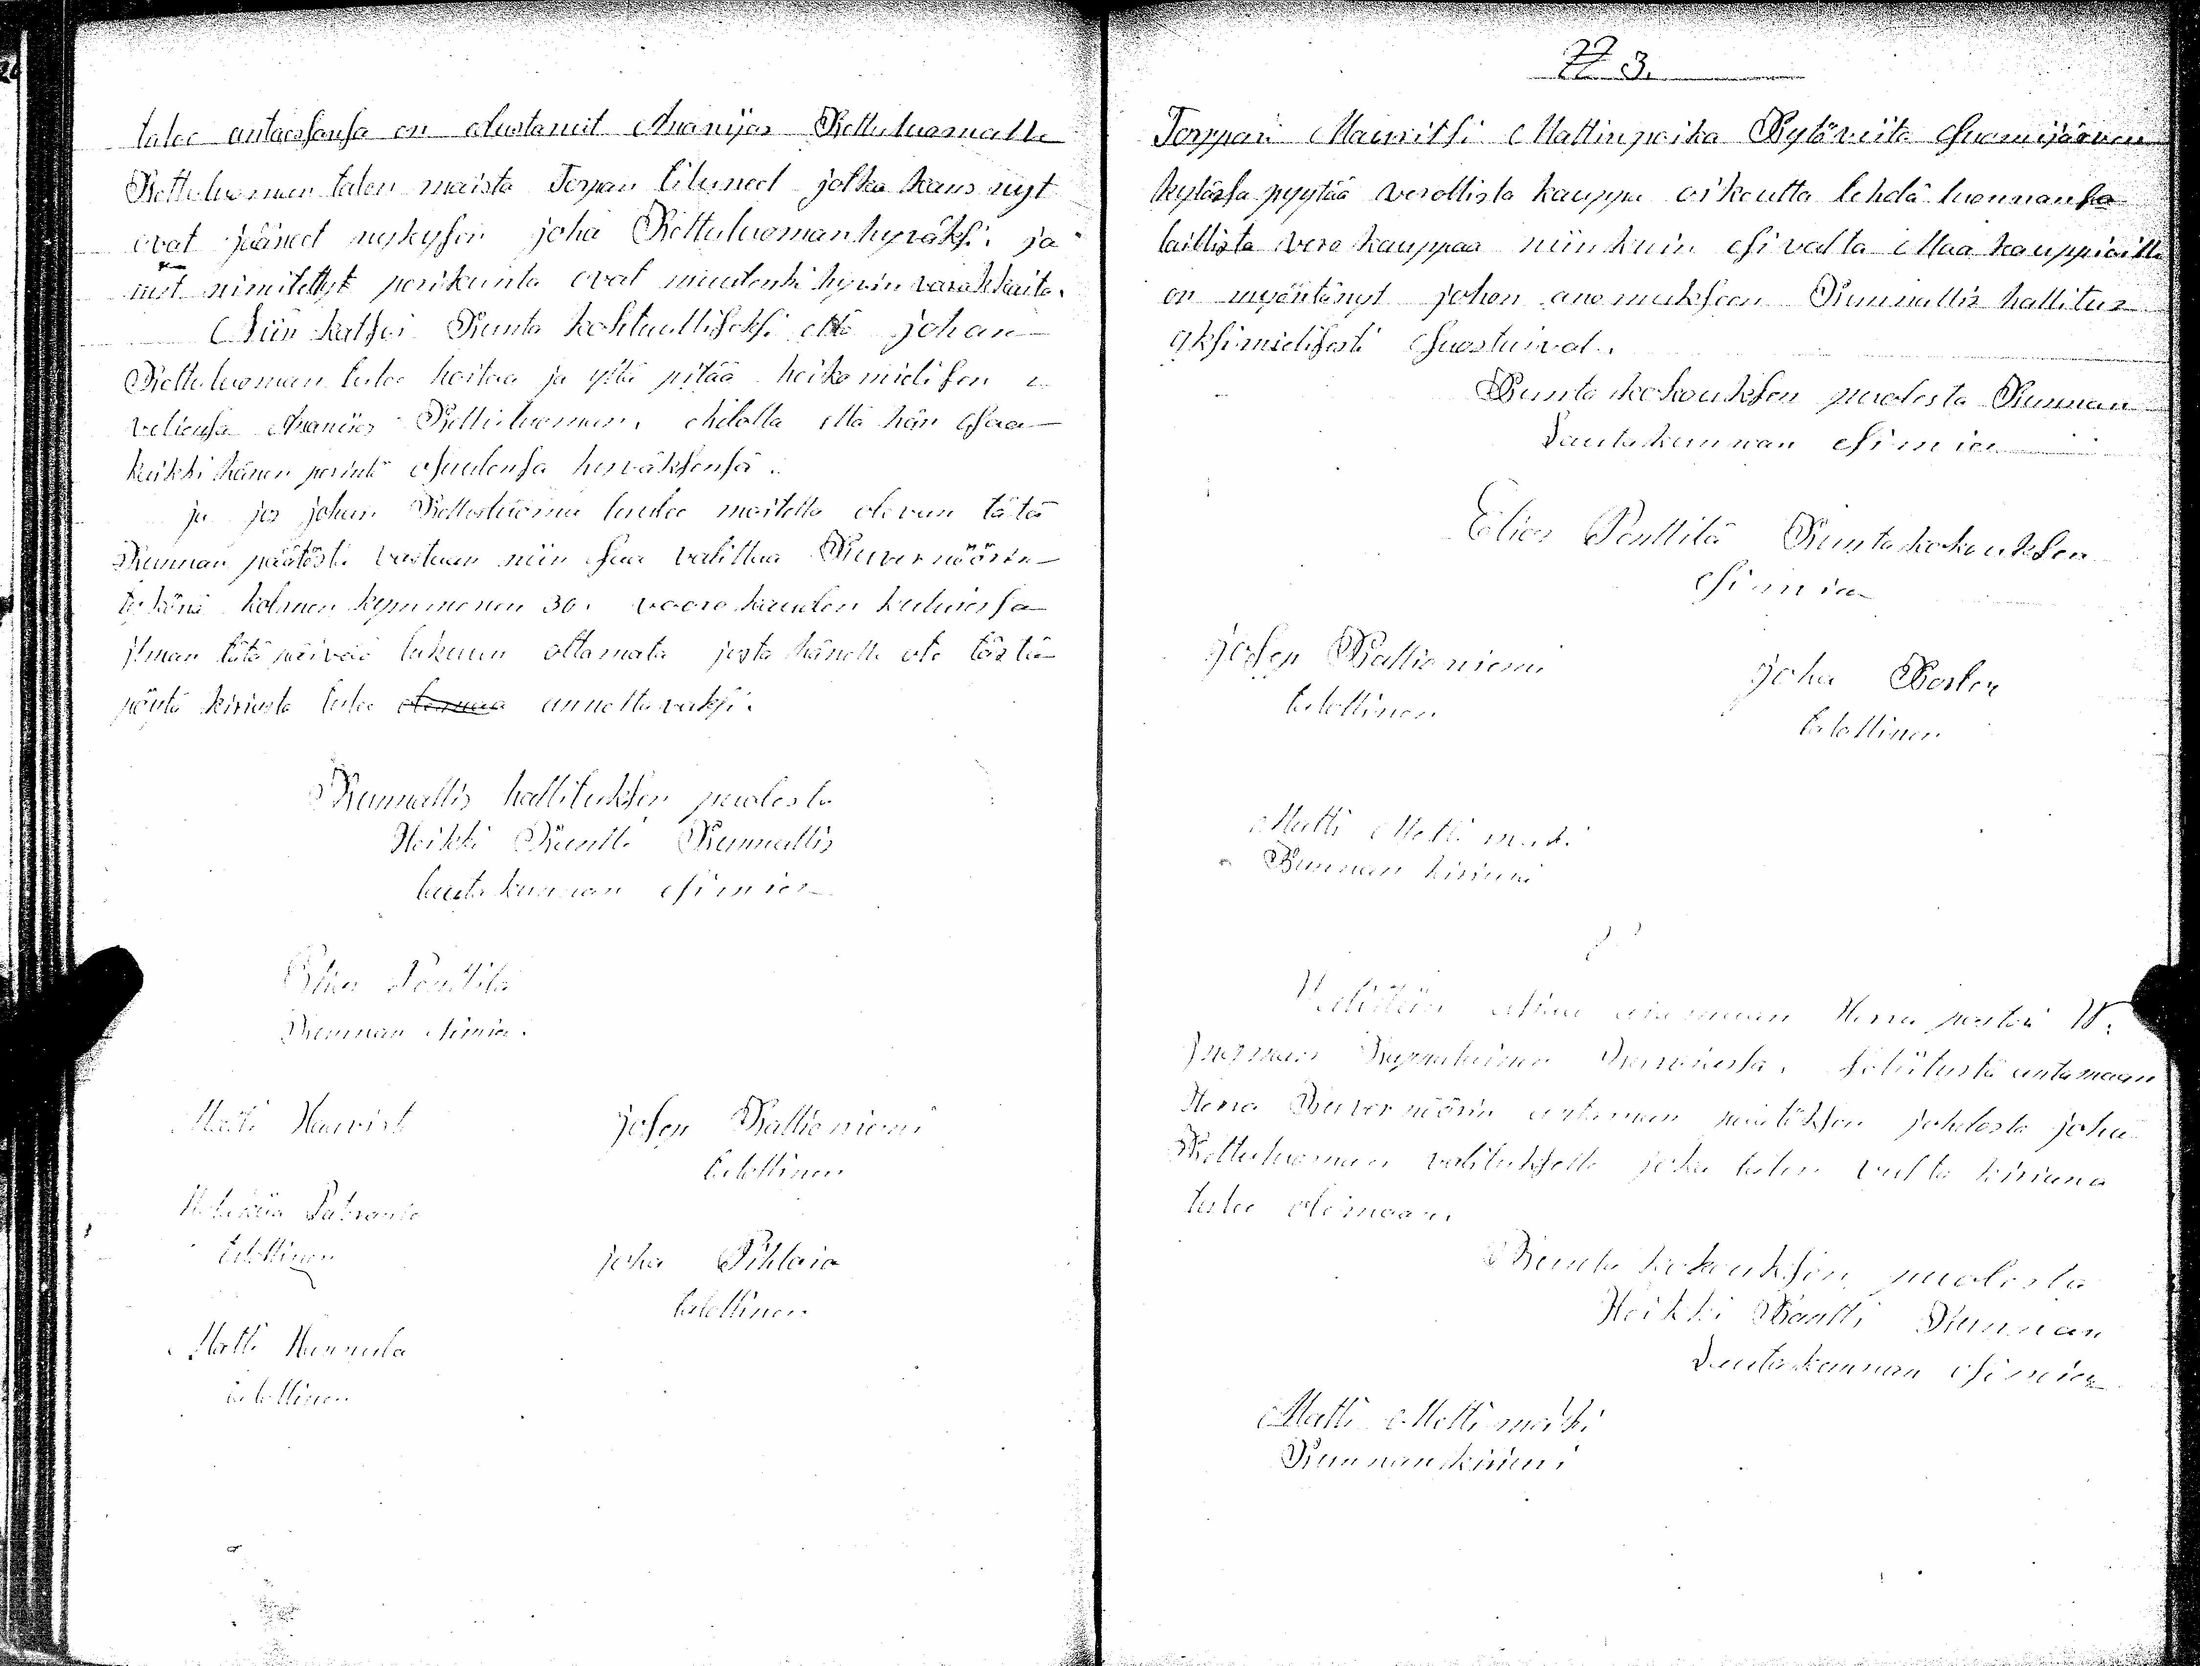 taloo antaessansa on alustanut Ananijas Kettuluomalle
Kettuluoman talon maista Torpan tiluned jotka kans nyt
ovat jääned nykysen joha Kettuluoman hyväksi. ja
nut nimitettyt perikunta ovat muutenki hyvin varakkaita.
Niin katsoi Kunta kohtuulliseksi että johan
Kettuluoman tulee hoitaa ja yllä pitää heikomielisen
veliensä Ananias Kettuluoman. ehdolla että hän Saa
kaikki hänen perintö osuudensa hyväksensä.
ja jos johan Kettuluoma luulee moitetta olevan tätä
Kunnan päätöstä vastaan niin saa valittaa Kuvernöörin
tykönä kolmen kymmenen 30. vuorokauden kuluessa
jlman tätä päivää lukuun ottamata josta hänelle ote tästä
pöytä kirjasta tulee annettavaksi.
Kunnallis hallituksen puolesta
Heikki Räntti Kunnallis
lautakunnan esimies
Elias Penttilä
Kunnan esimies.
Matti
josep Kallioniemi
talollinen
talollinen
joha Pihlaja
talollinen
Matti Hannula
talollinen
3.
Torppari Mauritsi Mattinpoika Kytöviita Suomijärven
kylässä pyytää verollista kauppa oikeutta tehdä luonnansa
laillista vero kauppaa niinkuin esivalta Maa kauppioille
on myöntänyt johon anomukseen Kunnallis hallitus
yksimielisesti Suostuivat.
Kunta kokouksen puolesta Kunnan
Lautakunnan esimies
Elias Penttilä Kuntakokouksen
esimies
josep Kallioniemi
talollinen
joha Koskey
talollinen
Matti Mettimäki
Kunnan kirjuri
Herra pastori
selitystä antamaan
Herra Kuvernöörin antaman päätöksen johdosta joha
Kettuluoman valitukselle joka talon valta kirjana
tulee olemaan.
Kunta kokouksen puolesta
Heikki Räntti Kunnan
Lautakunnan esimies
Matti Mettimäki
Kunnankirjuri